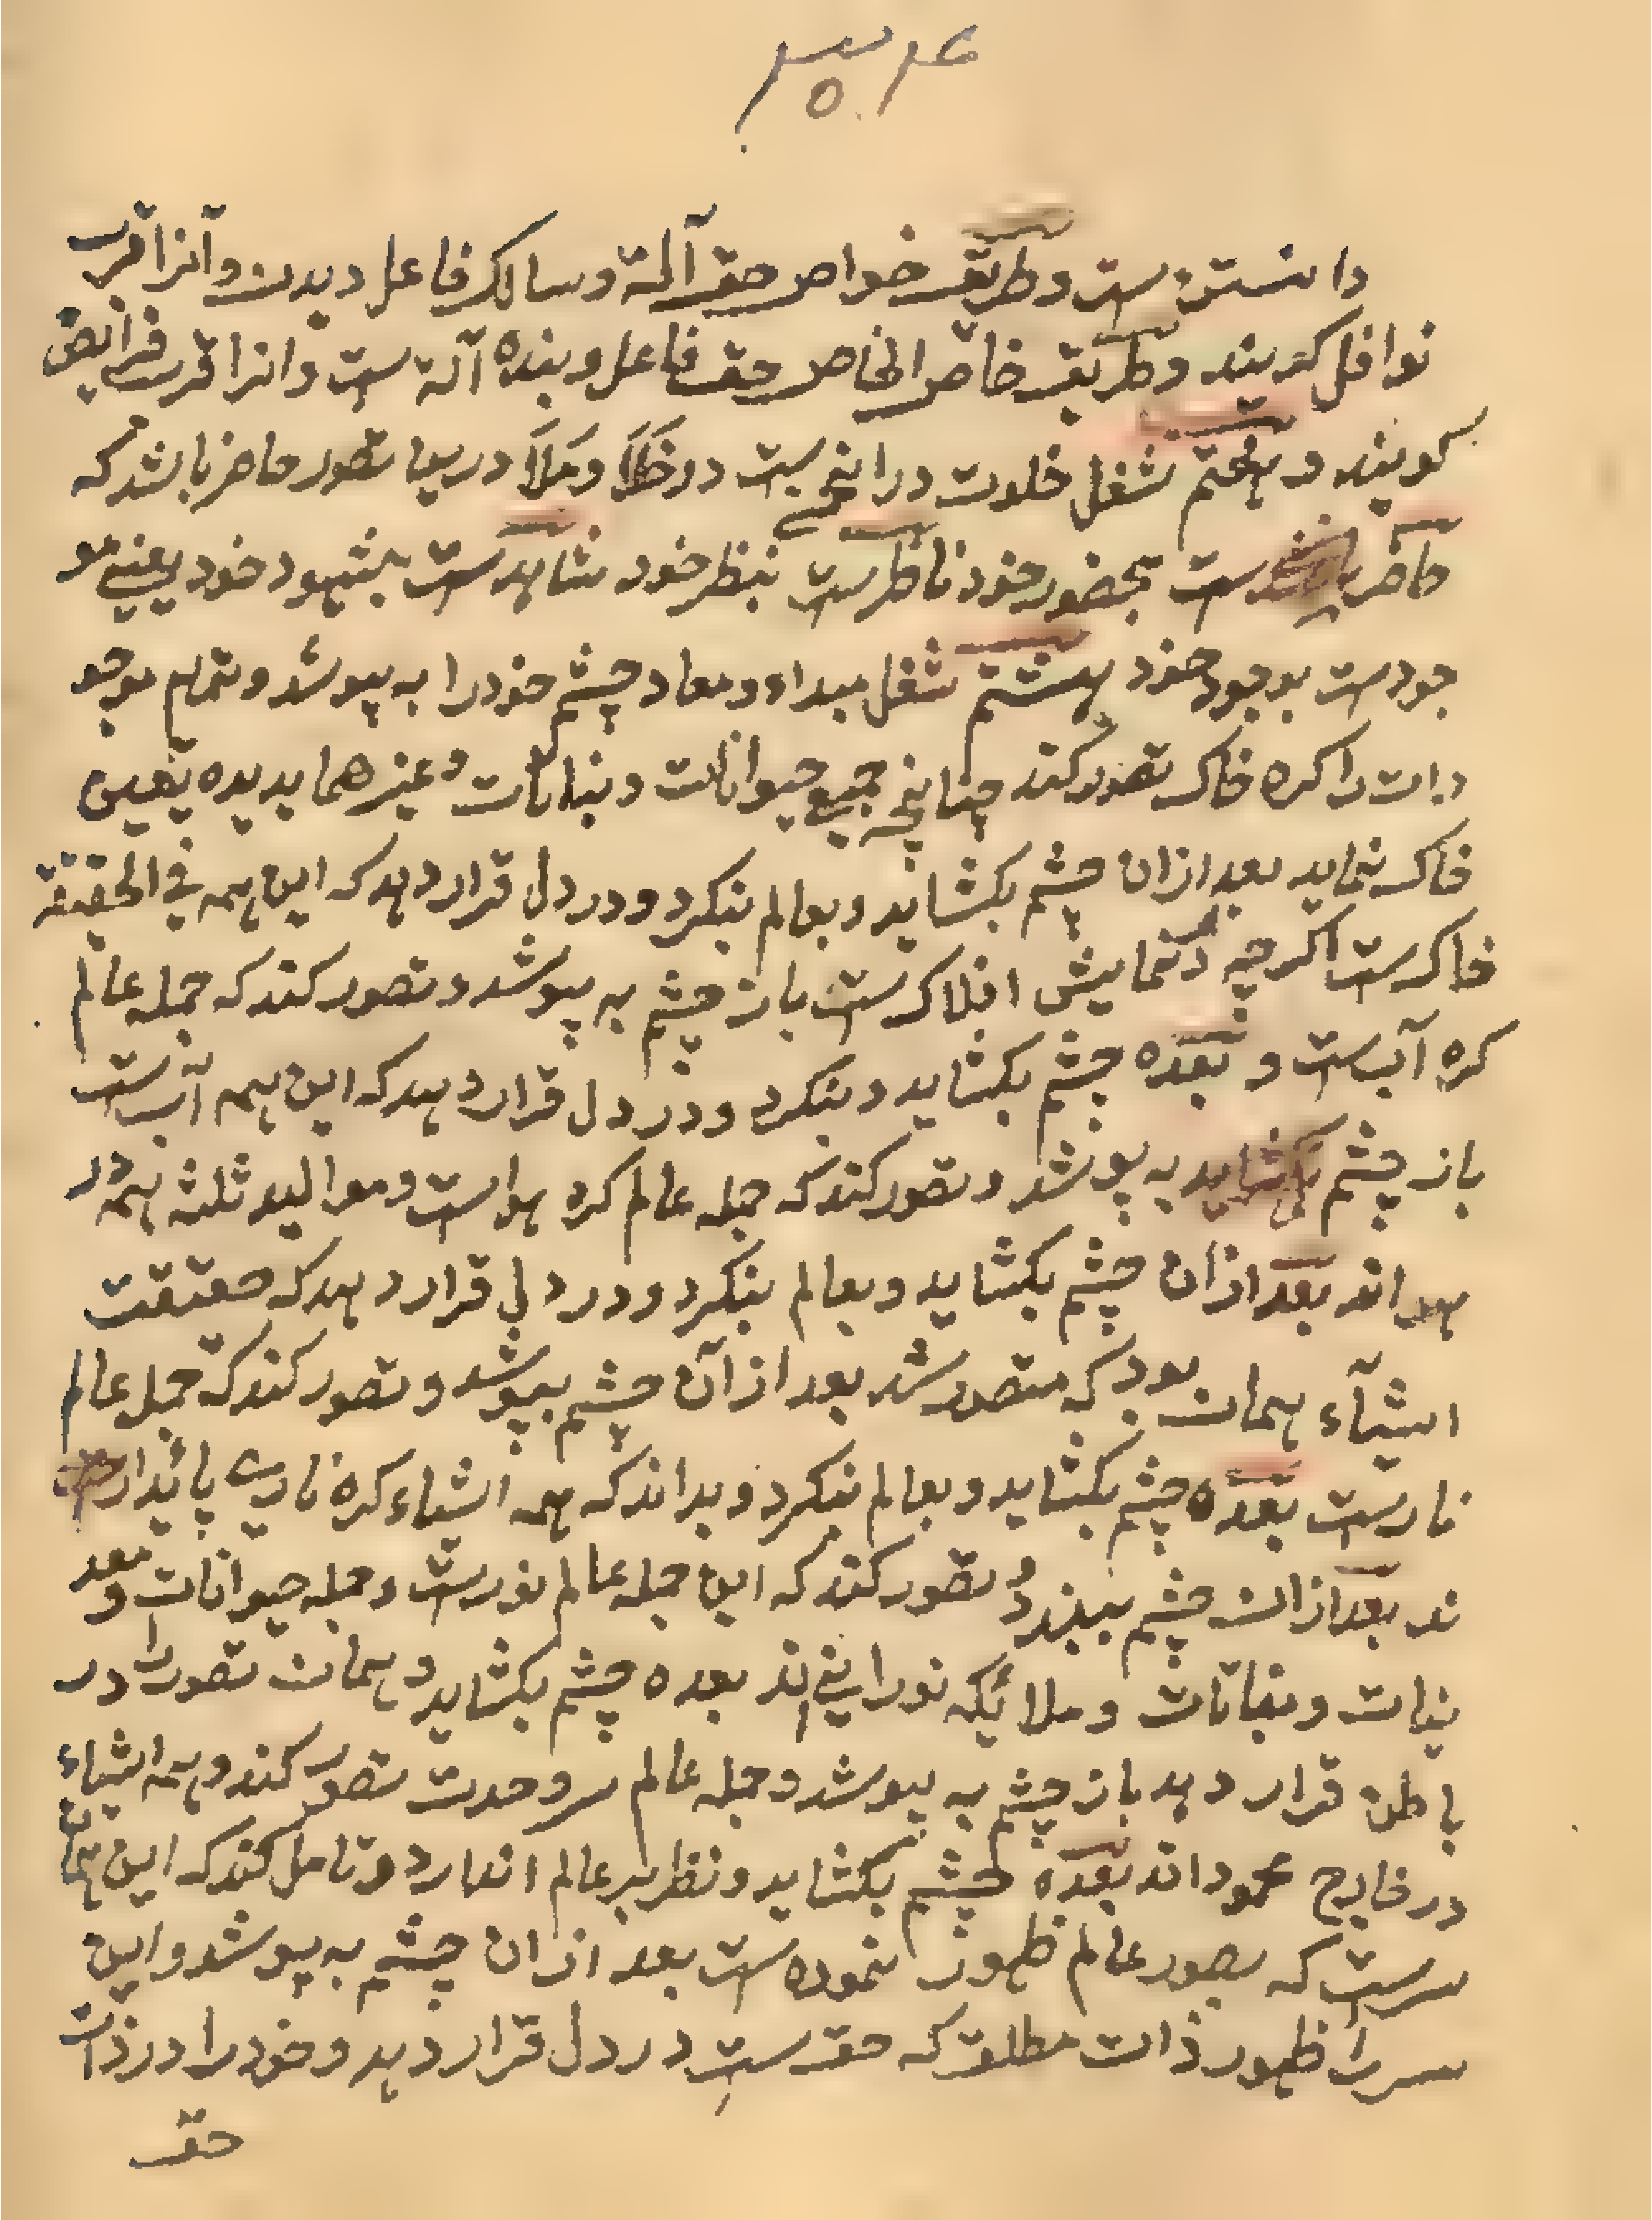 دانستن ست و طریق خواص حق آلة و سالک فاعل دیدن و آنرا قرب
نوافل کویند و طریق خاص الخاص حق فاعل و بنده آلة ست و انرا قرب فرایض
کویند و هفتم شغل خلوت در انجمن ست در خلأ و ملأ در یا تصور حاضر باشد که
حاضر ست بحضور خود ناظر ست بنظر خود شاهد ست بشهود خود یعنی مو
جود ست بوجود خود هشتم شغل مبداء و معاد چشم خود را به پوشد و تمام موجو
دات را کره خاک تصور کند چنانچه جمیع حیوانات و نباتات و غیر هما بدیده یقین
خاک نماید بعد ازان چشم بکشاید و بعالم بنکرد و در دل قرار دهد که این همه فی الحقیقة
خاک ست اکرچه در نمایش افلاک ست باز چشم به پوشد و تصور کند که جمله عالم
کره آب ست و بعده چشم بکشاید و بنکرد و در دل قرار دهد که این همه آب ست
باز چشم به پوشد و تصور کند که جمله عالم کره هواست و موالید ثلثه همه در
هوا اند بعد ازان چشم بکشاید و بعالم بنکرد و در دل قرار دهد که حقیقت
اشیآء همان بود که متصور شد بعد از آن چشم بپوشد و تصور کند که جمله عالم
نار ست بعده چشم بکشاید و بعالم بنکرد و بداند که همه اشیاء کره ناری پائدار
ند بعد ازان چشم ببندد و تصور کند که این جمله عالم نور ست و جمله حیوانات و معد
نیات و نباتات و ملائیکه نورانی اند بعده چشم بکشاید و همان تصور را در
باطن قرار دهد باز چشم به پوشد و جمله عالم سر وحدت تصور کند و همه اشیاء
در خارج محو داند بعده چشم بکشاید و نظر بر عالم اندازد و تامل کند که این همان
سر ست که بصور عالم ظهور نموده ست بعد ازان چشم به پوشد و این
سر را ظهور ذات مطلق که حق ست در دل قرار دهد و خود را در ذات
حق